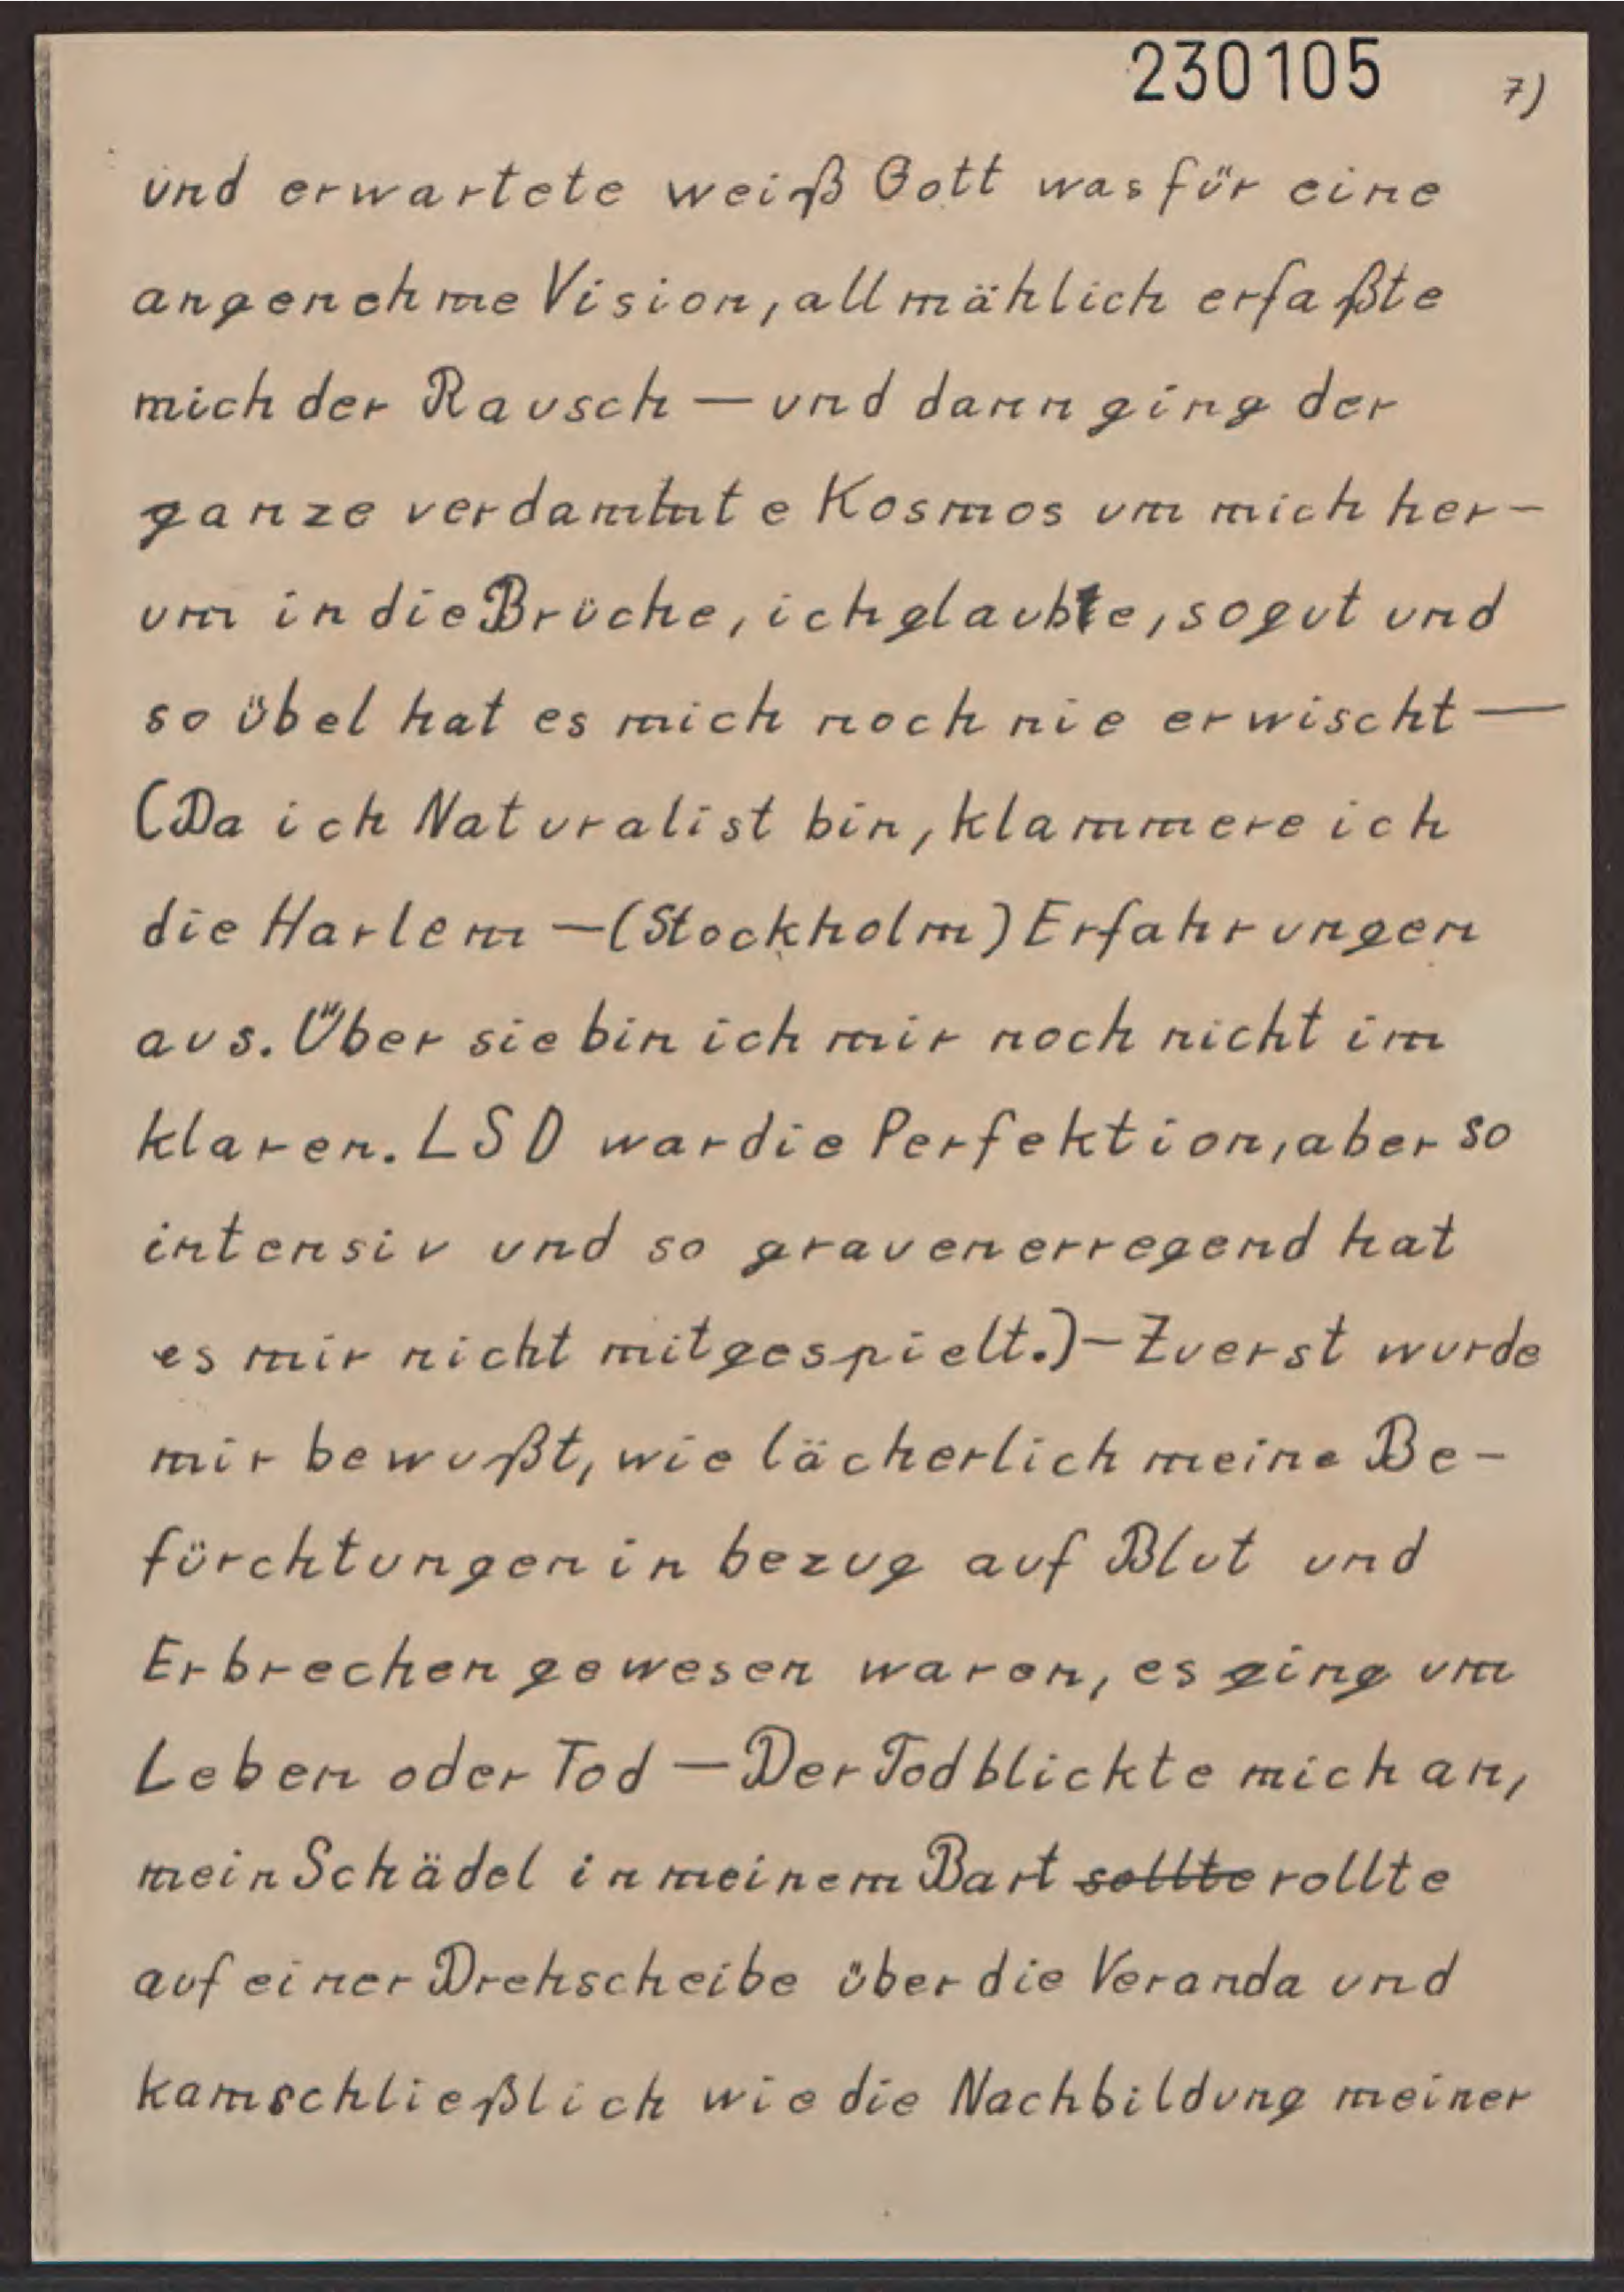 230105 7)
und erwartete weiß Gott was für eine
angenehme Vision, allmählich erfaßte
mich der Rausch — und dann ging der
ganze verdammte Kosmos um mich her-
um in die Brüche, ich glaubte, so gut und
so übel hat es mich noch nie erwischt —
(Da ich Naturalist bin, klammere ich
die Harlem - (Stockholm) Erfahrungen
aus. Über sie bin ich mir noch nicht im
klaren. LSD war die Perfektion, aber so
intensiv und so grauenerregend hat
es mir nicht mitgespielt.) - Zuerst wurde
mir bewußt, wie lächerlich meine Be-
fürchtungen in bezug auf Blut und
Erbrechen gewesen waren, es ging um
Leben oder Tod — Der Tod blickte mich an,
mein Schädel in meinem Bart sollte rollte
auf einer Drehscheibe über die Veranda und
kam schließlich wie die Nachbildung meiner